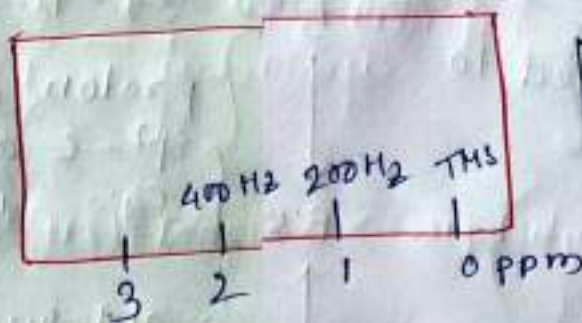 400 Hz 200 Hz TMS
3 2 1 0 ppm